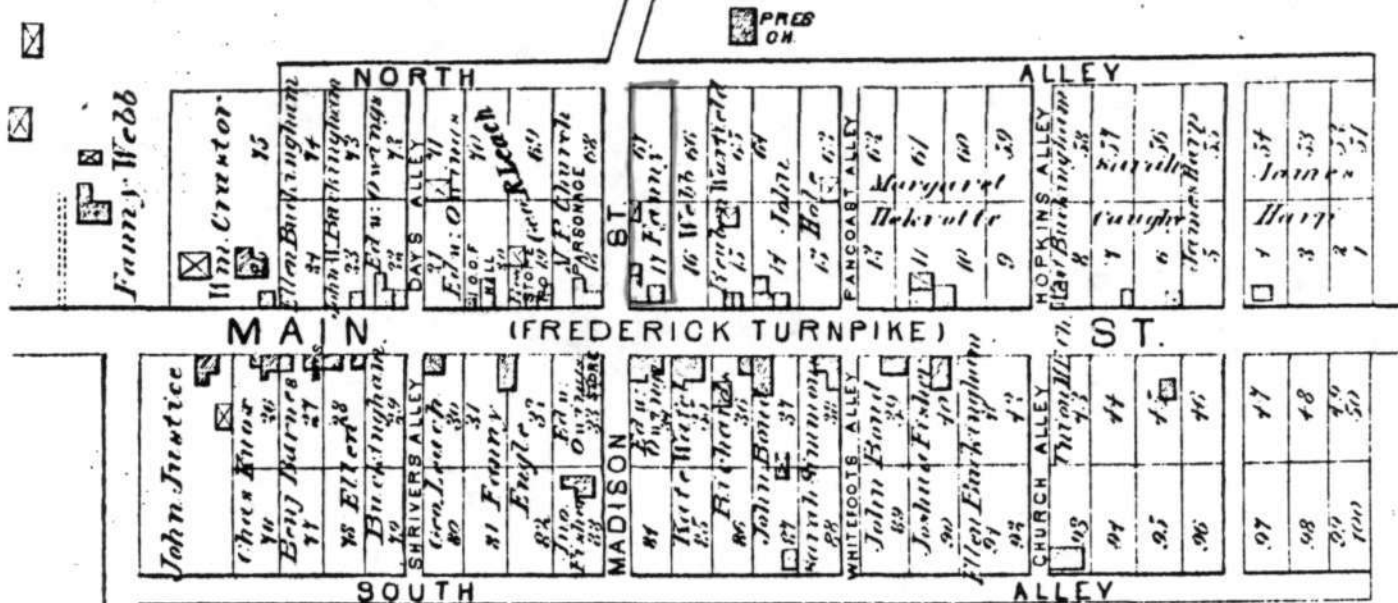 PRES
CH.
NORTH ALLEY
Fanny Webb
Wm. Crustor
75
Ellen Buckingham
74
24
John W Buckingham
73
23
Edw: Owings
72
22
DAYS ALLEY
71
21
Edw: Owings
70
I.O.O.F
HALL
R Leach
69
STORE
P.O.
M. P. Church
PARSONAGE
68
ST
67
17 Fanny
Webb 66
16
Reuben Warfield
65
15
64
14 John
Hole 63
13
PANCOAST ALLEY
62
61
60
59
Margaret
Hokratte
12
11
10
9
HOPKINS ALLEY
Buckingham 58
8
57
7
56
6
James Harp
55
5
54
53
52
51
James
Harp
4
3
2
1
MAIN (FREDERICK TURNPIKE) ST.
John Justice
Chas Knox
26
76
Benj Barnes
27
77
28
78 Ellen
Buckingham
29
79
SHRIVERS ALLEY
Geo. Leach
30
80
31
81 Fanny
Engle
32
82
Edw: Owings
33
STORE
Jno.
83
MADISON
Edw: Owings
34
84
Kate Water
35
85
Richard
36
86
John Bond
37
87
Sarah Simmons
38
88
WHITEFOOTS ALLEY
John Bond
39
89
Joshua Fisher
40
90
Ellen Buckingham
41
91
42
92
CHURCH ALLEY
Union M.E. Ch.
43
93
44
94
45
95
46
96
47
97
48
98
49
99
50
100
SOUTH ALLEY